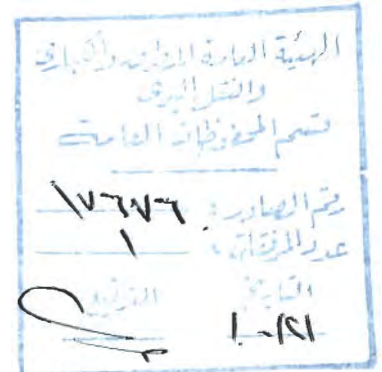 الهيئة العامة للطرق والكباري
والنقل البري
قسم المحفوظات العامة
رقم الصادر: ١٧٦٧٦
عدد المرفقات: ١
التاريخ التوقيع
١٠/٢١